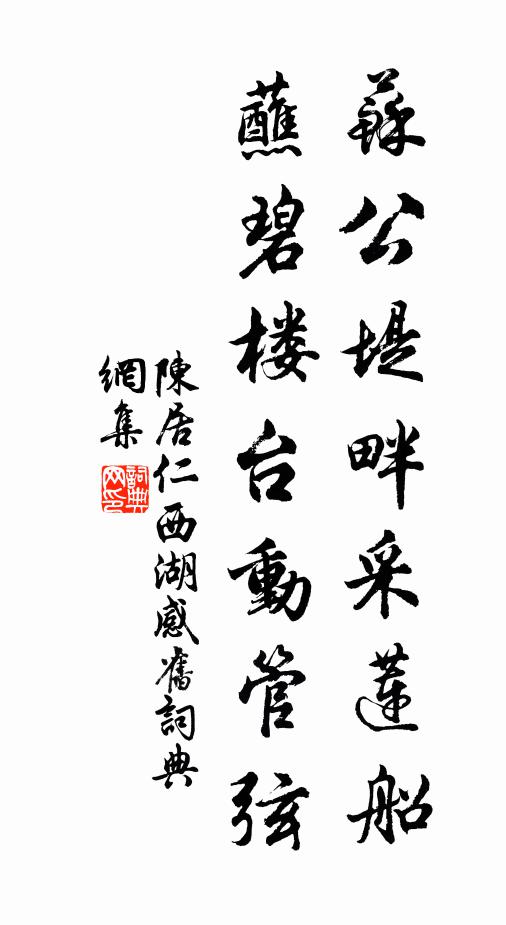 蘇公堤畔采蓮船
蘸碧楼台動管弦
陳居仁西湖感舊詞典
網集
詞典網印